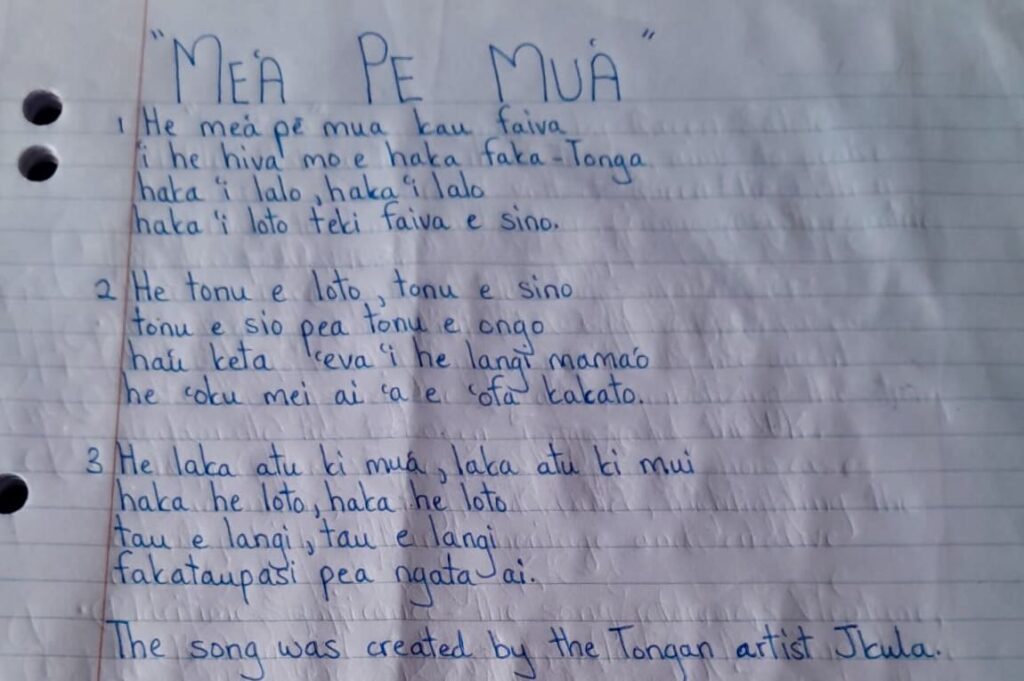 "MEÁ PE MUÁ"
1 He meá pē mua kau faiva
'i he hiva mo e haka faka-Tonga
haka 'i lalo, haka 'i lalo
haka 'i loto teki faiva e sino.
2 He tonu e loto, tonu e sino
tonu e sio pea tonu e ongo
haú keta 'eva 'i he langi mamaó
he 'oku mei ai 'a e 'ofa kakato.
3 He laka atu ki muá, laka atu ki mui
haka he loto, haka he loto
tau e langi, tau e langi
fakataupasi pea ngata ai.
The song was created by the Tongan artist Jkula.